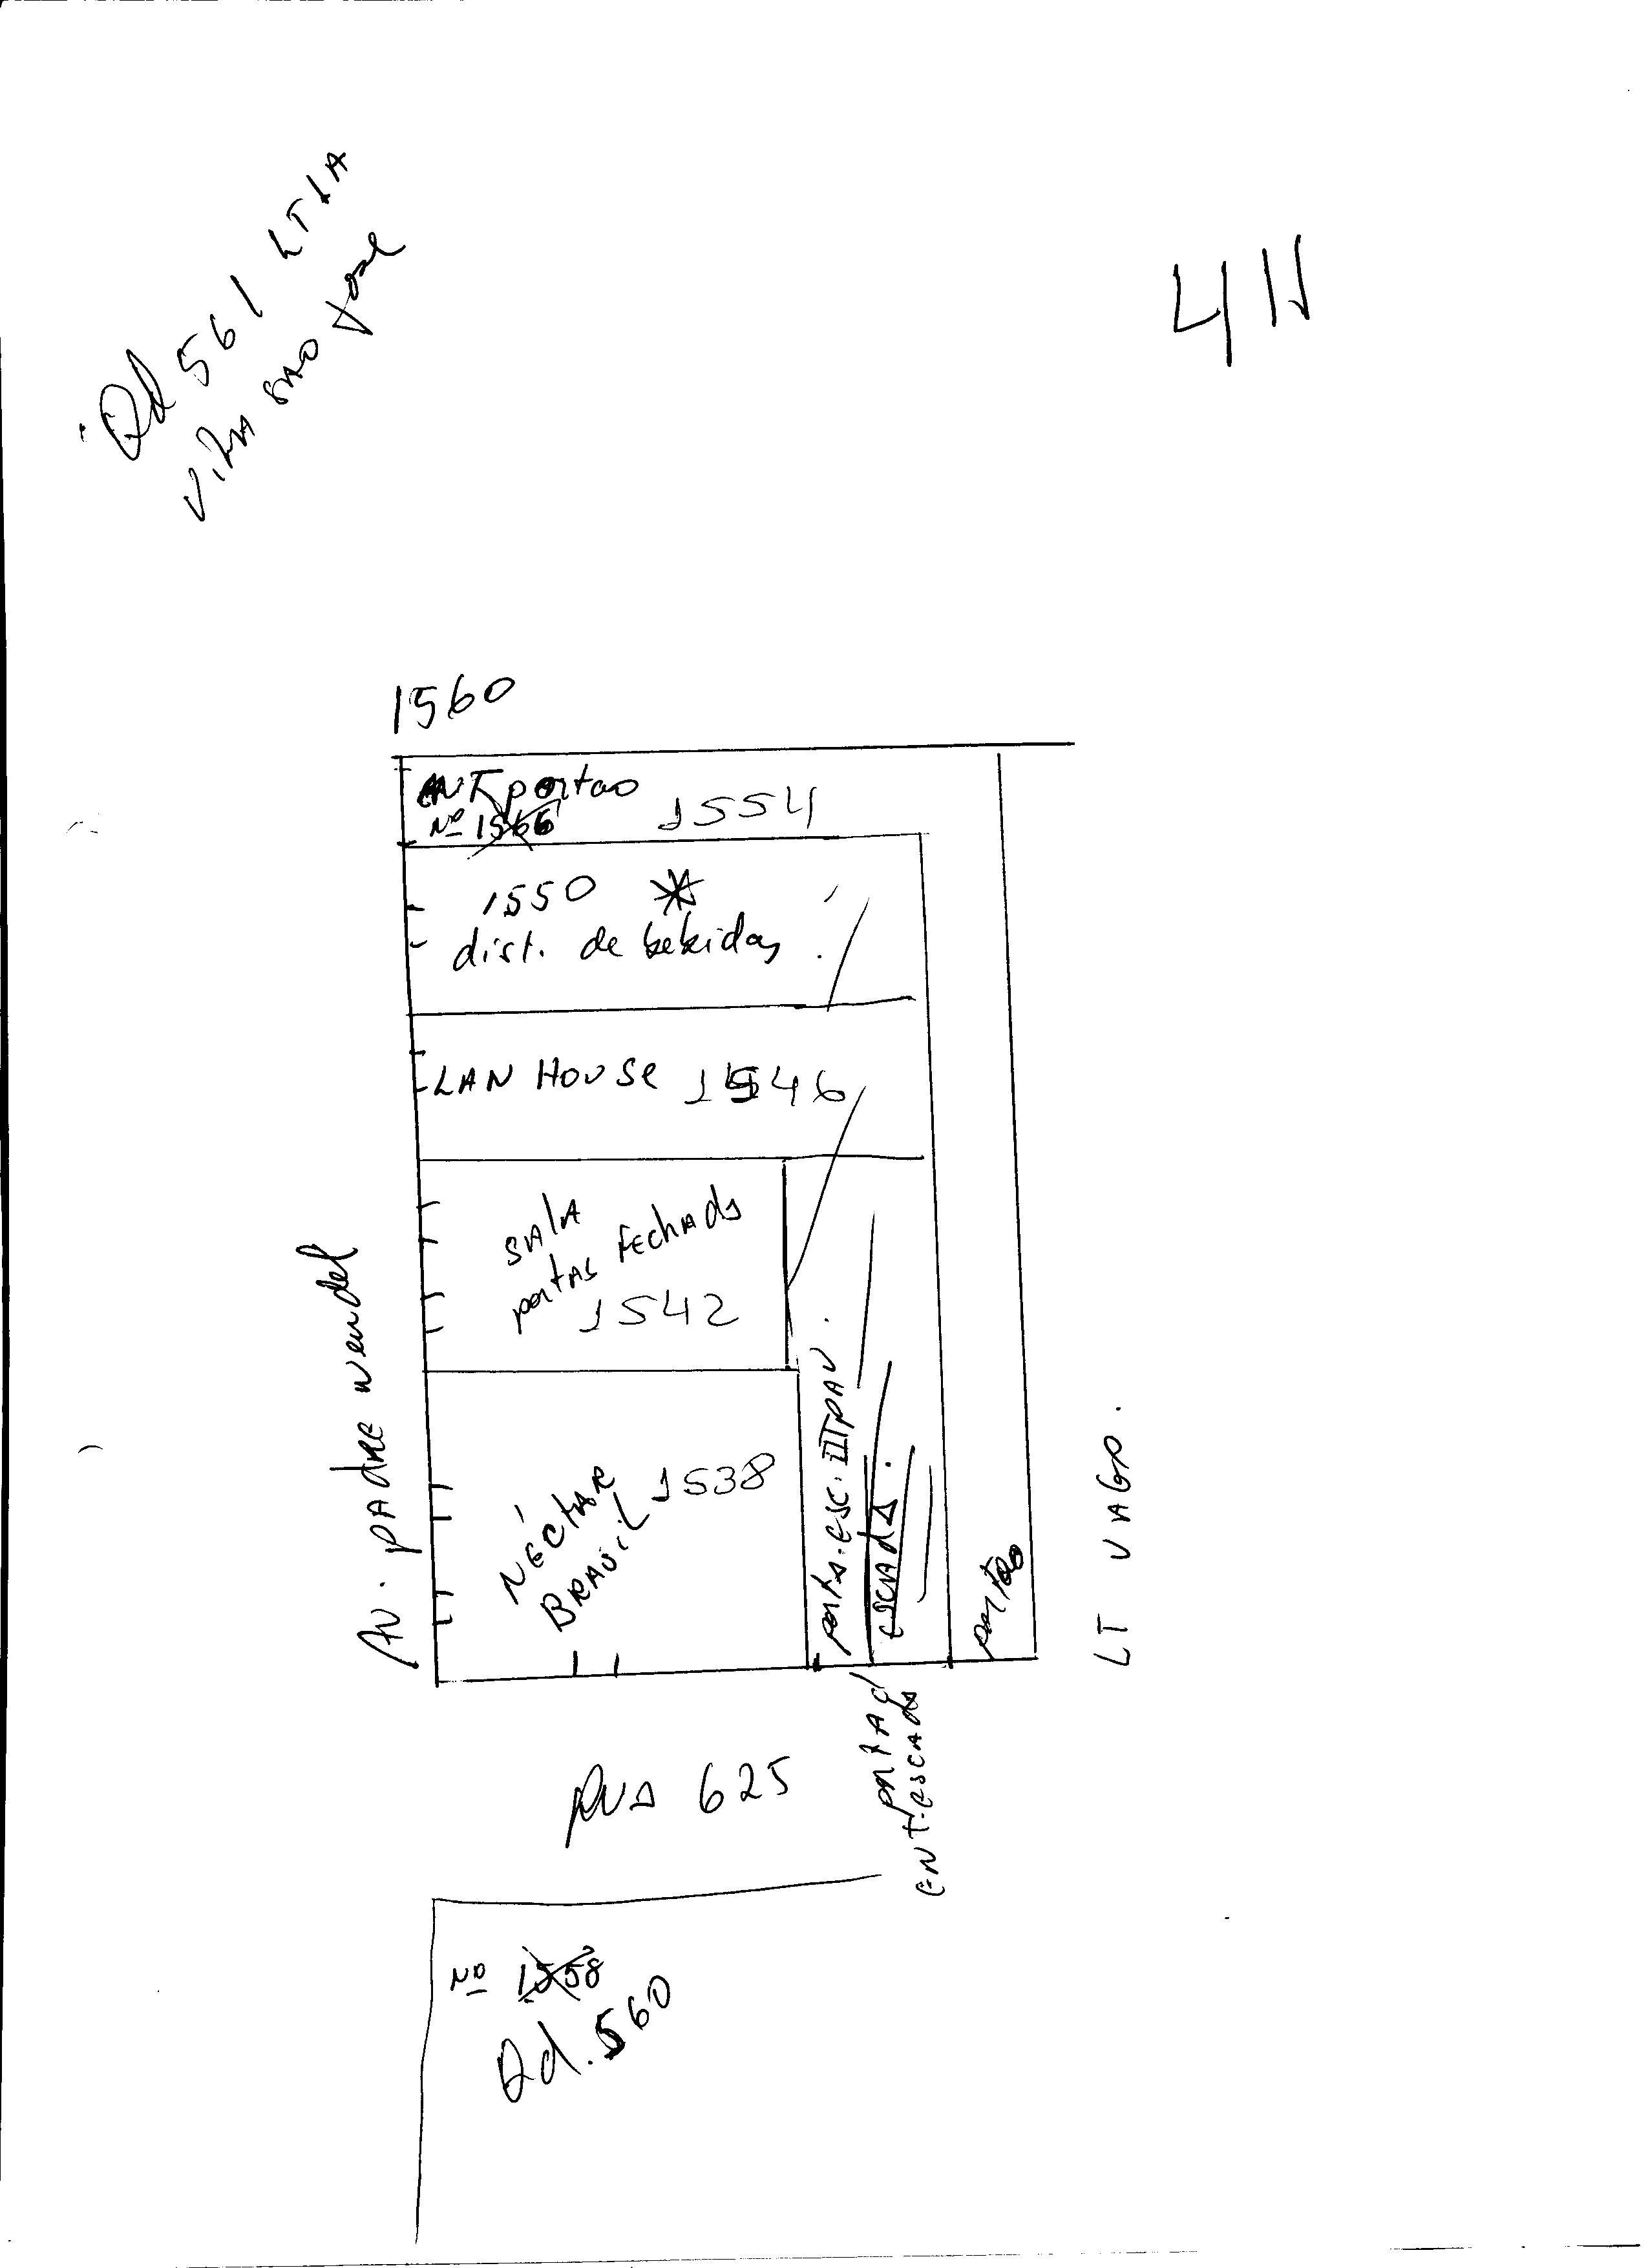 Qd 561 LT 1A
VILA SÃO José
411
1560
ENT portao
Nº 1566
1554
1550 *
dist. de bebidas
LAN HOUSE 1546
SALA
portas FECHADA
1542
NÉCTAR
BRASIL
1538
porta. esc. II PAV.
escada.
portão
Av. PADRE Wendel
LT VAGO.
porta c/
ENT. escada
RUA 625
Nº 1558
Qd. 560